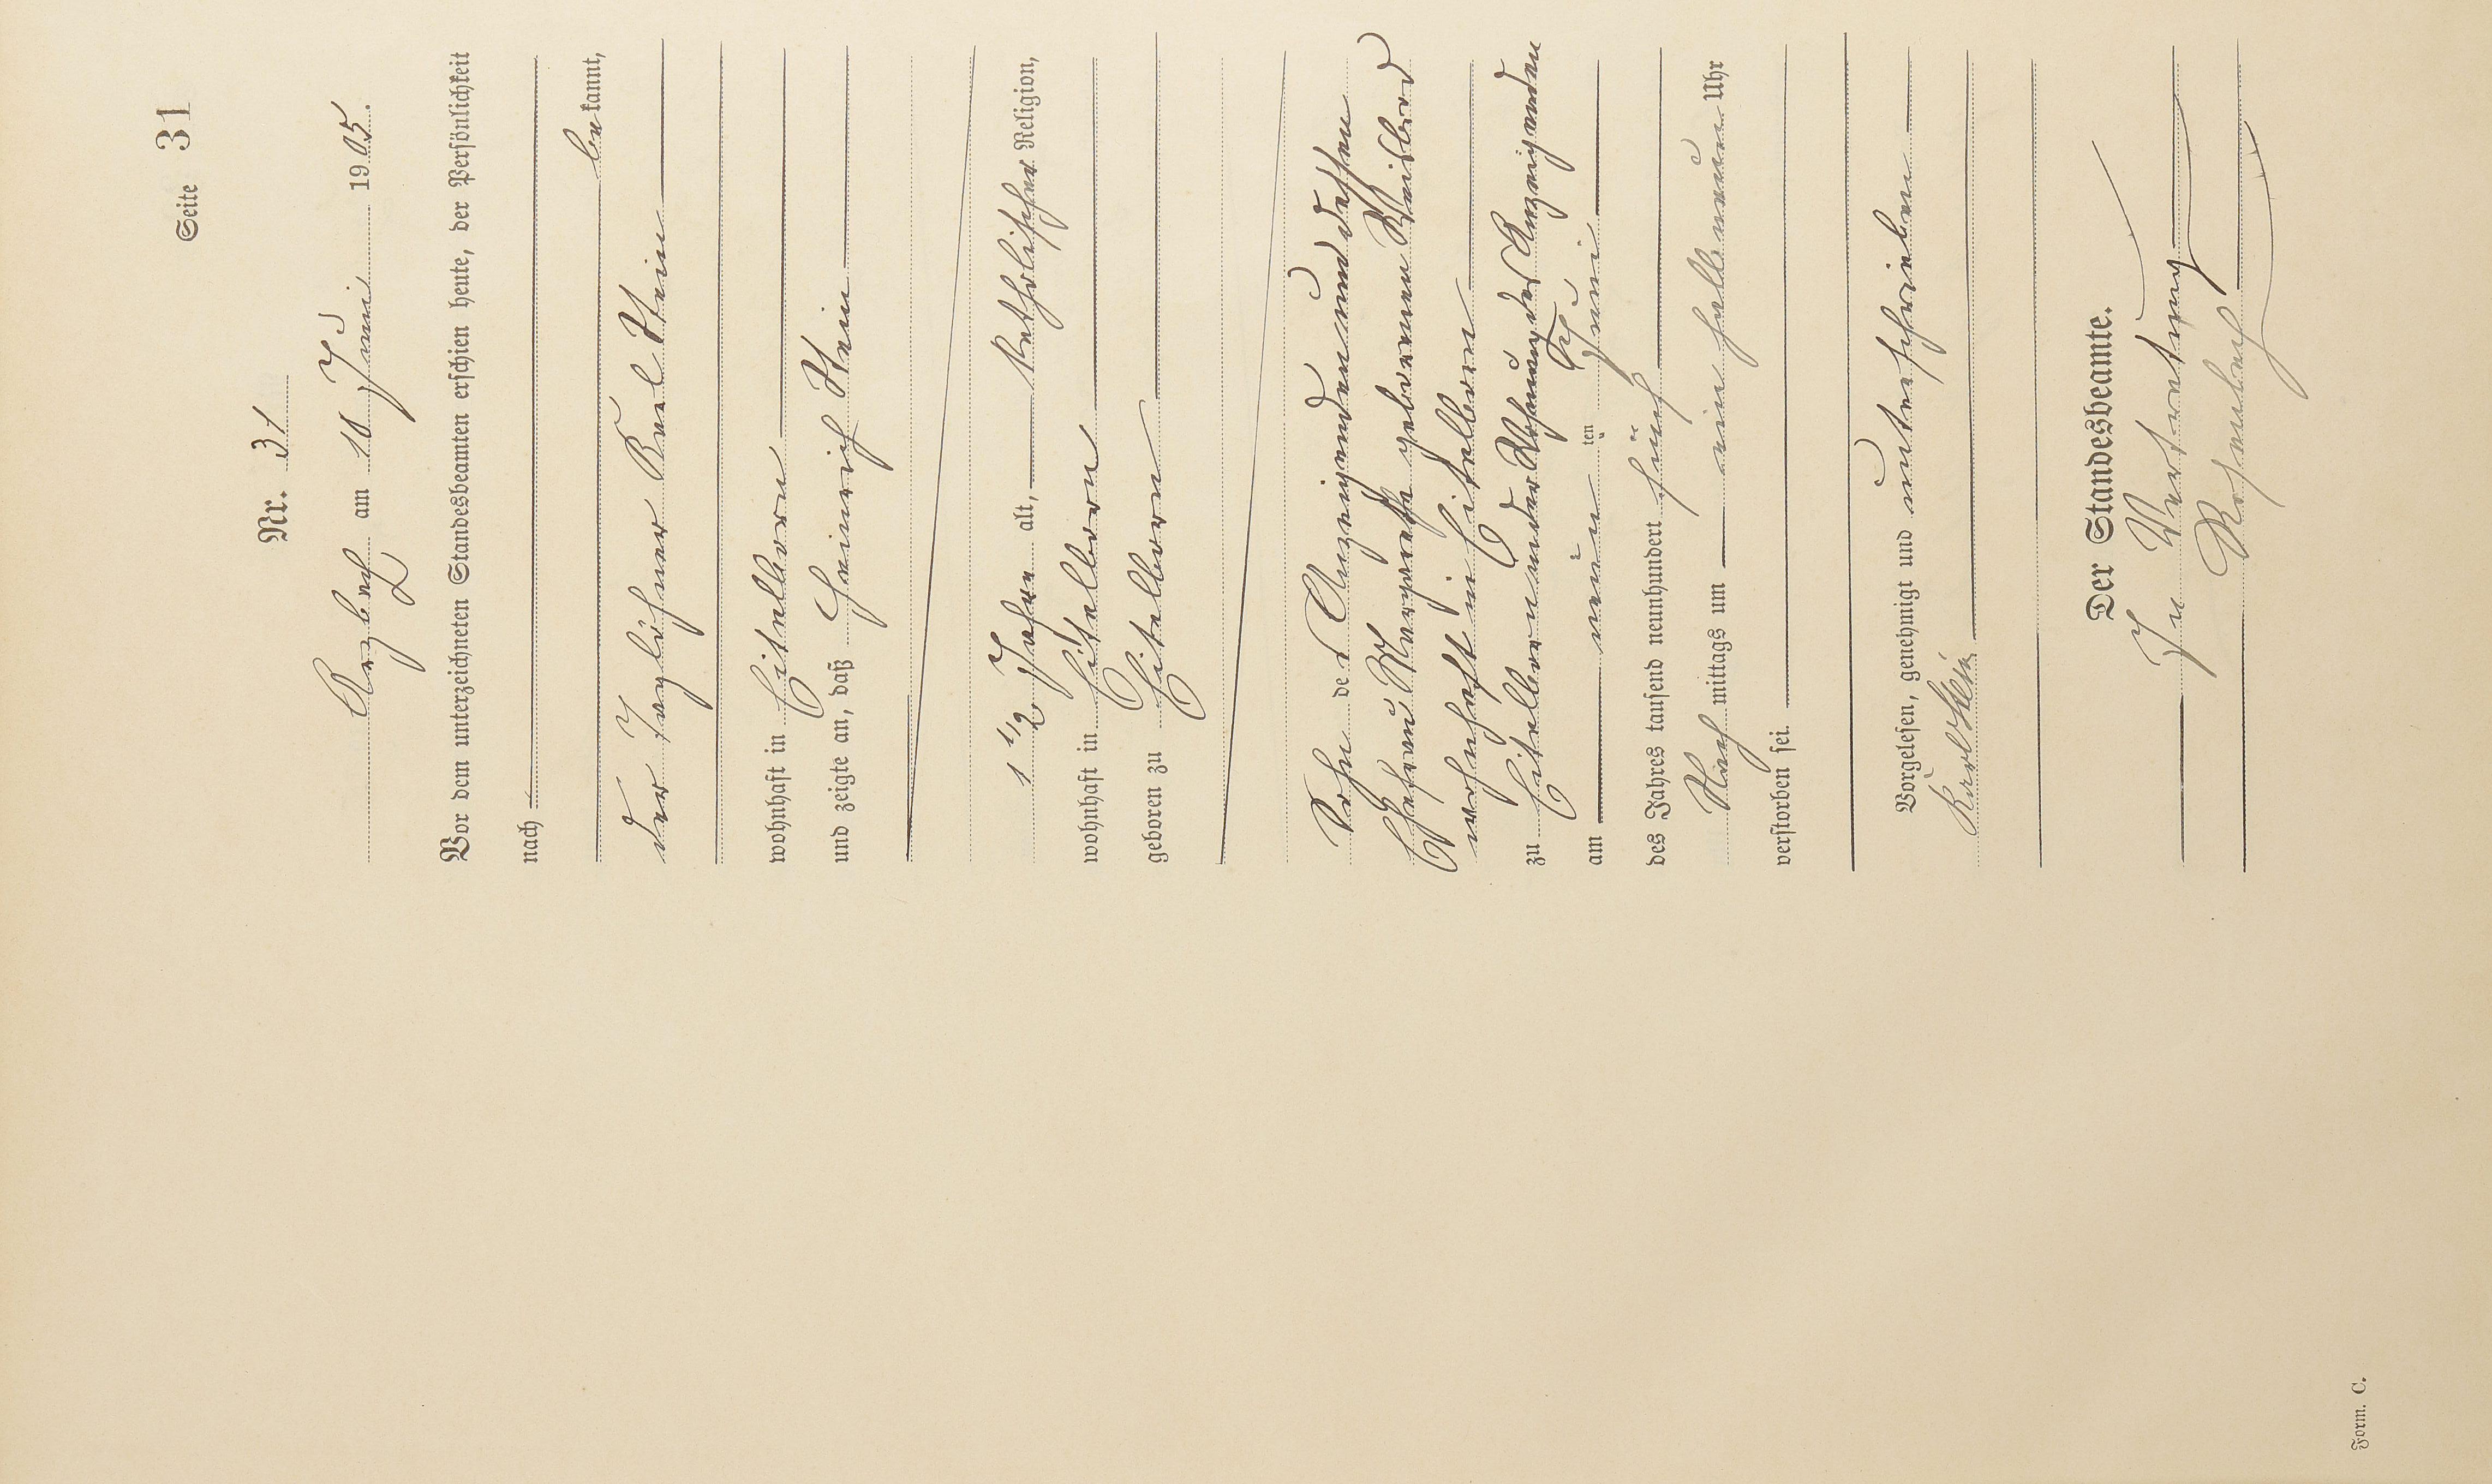 Seite 31
Nr. 31
Arzbach am 10 Juni 1905.
Vor dem unterzeichneten Standesbeamten erschien heute, der Persönlichkeit
nach
bekannt,
der Taglöhner Karl Stein
wohnhaft in Eitelborn
und zeigte an, daß Heinrich Stein
1 1/2 Jahre alt, katholischer Religion,
wohnhaft in Eitelborn
geboren zu Eitelborn
Sohn des Anzeigenden und dessen
Ehefrau Margarethe geborenen
wohnhaft in Eitelborn
zu Eitelborn in der Wohnung des Anzeigenden
am neunten Juni
des Jahres tausend neunhundert fünf
Nachmittags um ein halb neun Uhr
verstorben sei.
Vorgelesen, genehmigt und unterschrieben
Karl Stein
Der Standesbeamte.
In Vertretung
Form. C.